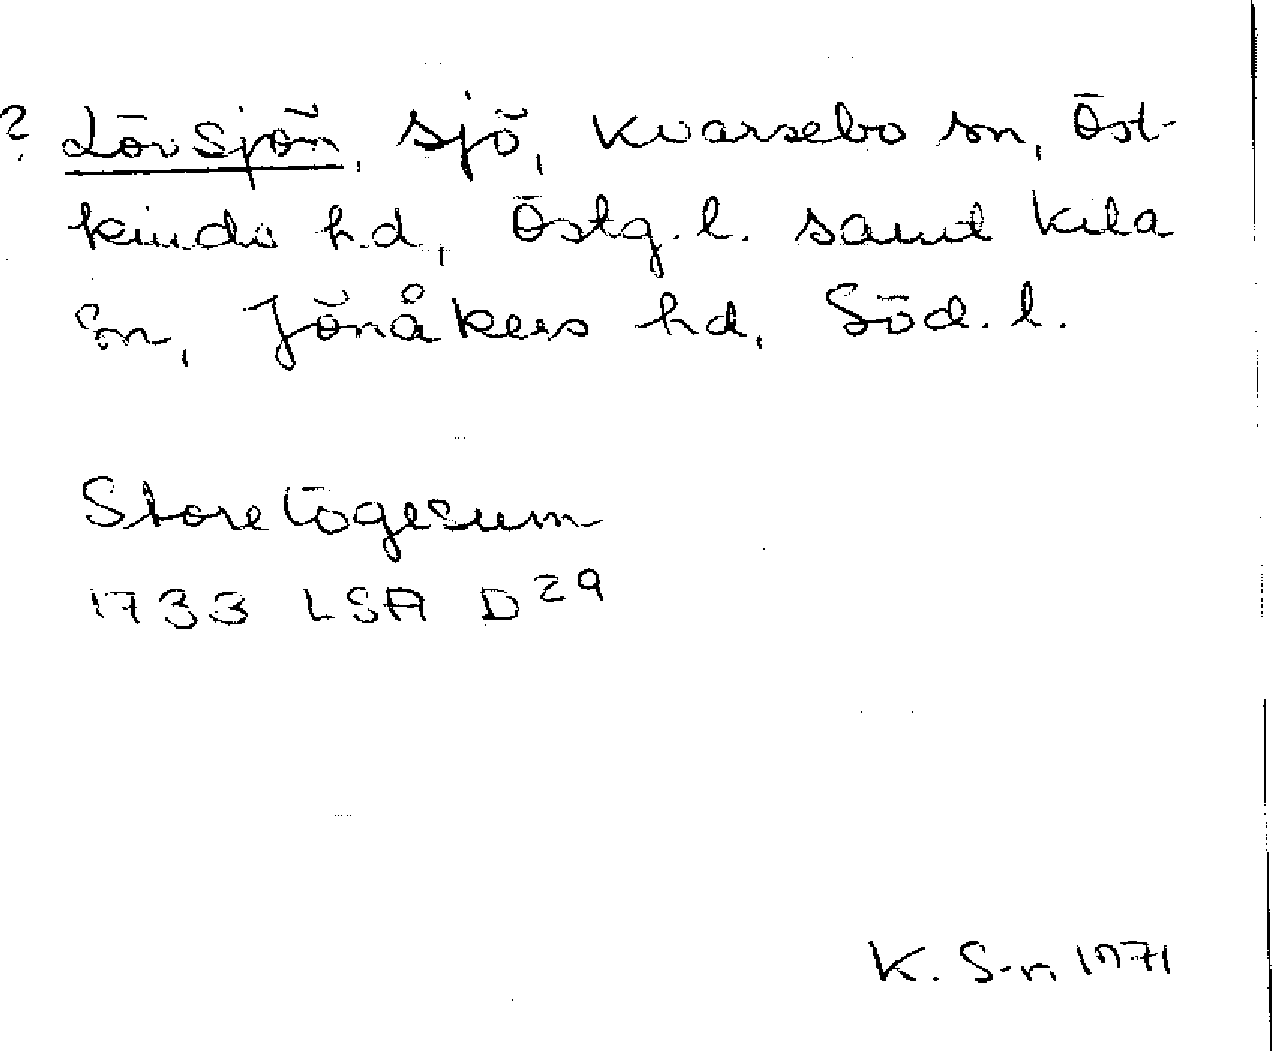 ? Lövsjön, sjö, Kvarsebo sn, Öst-
kinds hd, Östg. l. samt Kila
sn, Jönåkers hd, Söd. l.
Store Lögesum
1733 LSA D29
K. S-n 1971